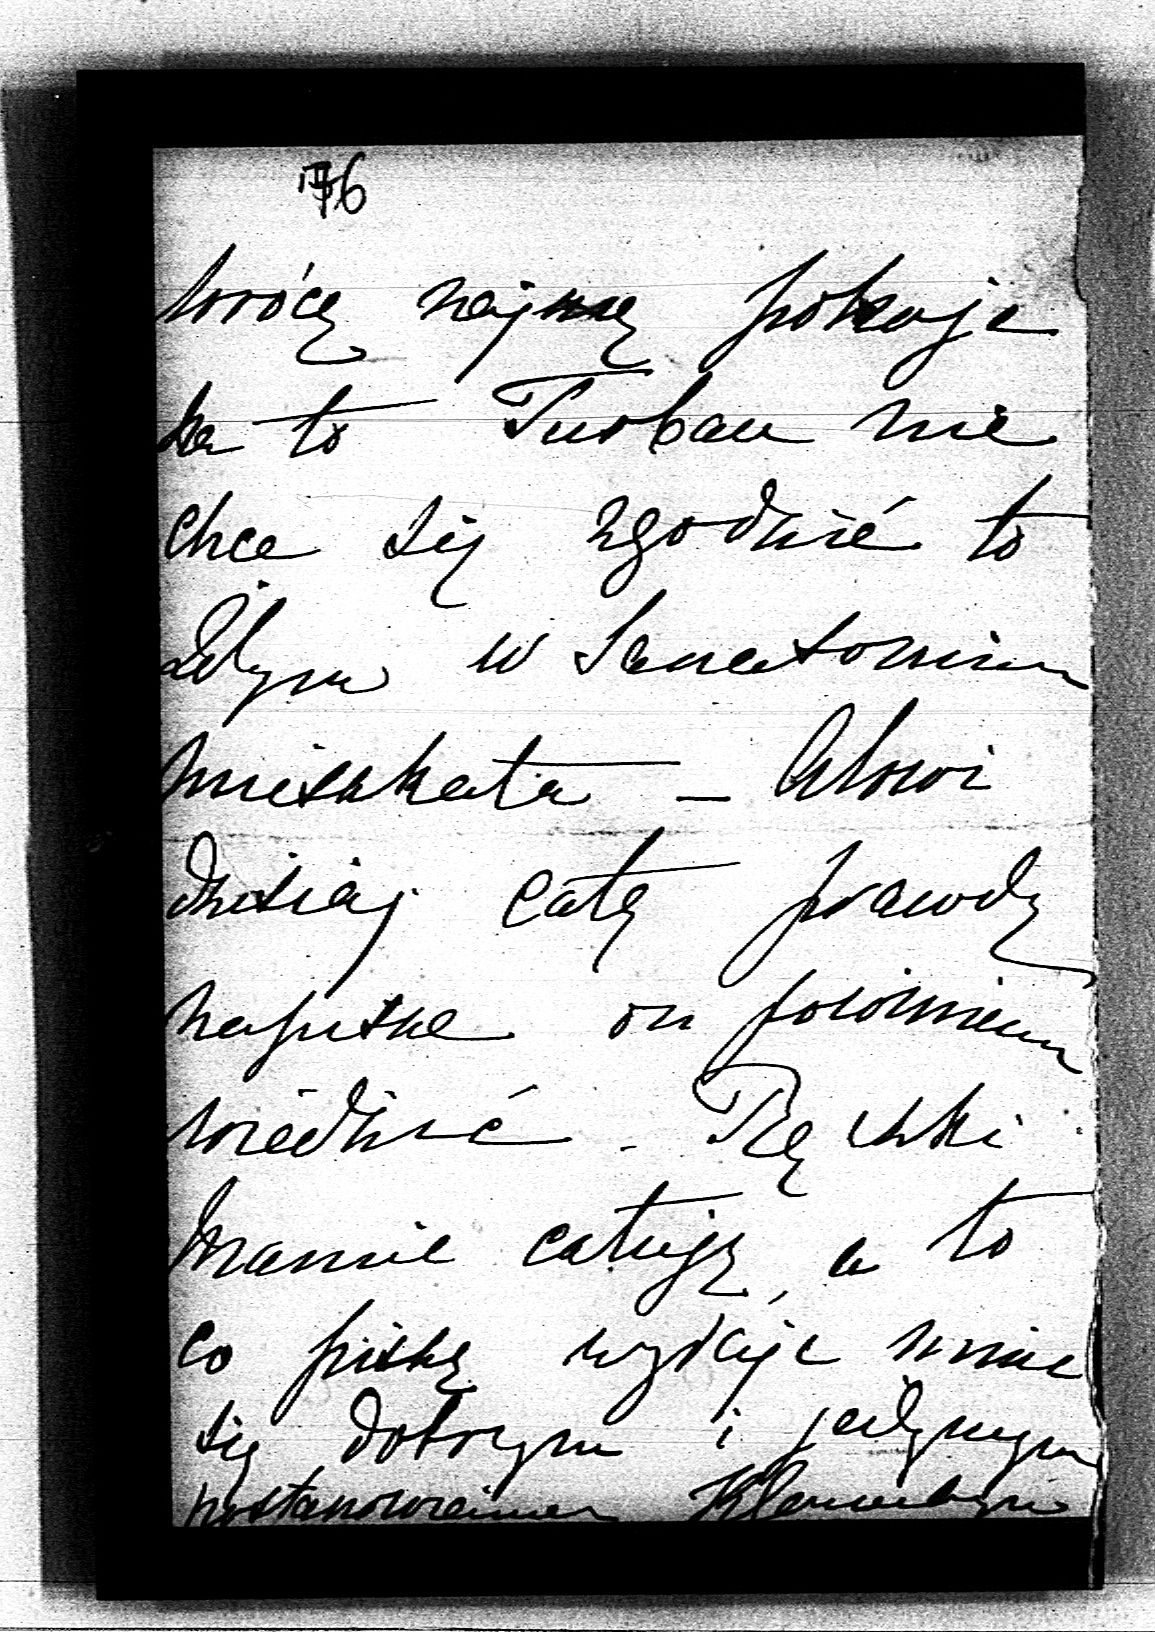 76
wrócę najmę pokoje
na to Turban nie
chce się zgodzić to
żebym w Sanatorium
mieszkała – 
dzisiaj całą prawdę
napiszę on powinien
wiedzieć. Rączki
Mamie całuję, a to
co piszę wydaje mnie
się dobrym i jedynym
postanowieniem Klementyna